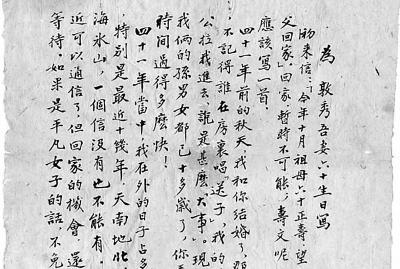 為敦秀吾妻六十生日寫
來信：「今年十月祖母六十正壽望
父回家。」回家：暫時不可能；壽文呢
應該寫一首。
四十一年前的秋天，我和你結婚了，那
不記得誰在房裏唱「送子」，我的
公拉我進去，說是甚麽「大事」。現
我倆的孫男女都已十多歲了，你
時間過得多麽快！
四十一年當中，我在外的日子占多
特別是最近十幾年，天南地北
海氷山，一個信没有也不能有。
近可以通信了，但回家的機會，還
等待。如果是平凡女子的話，不免